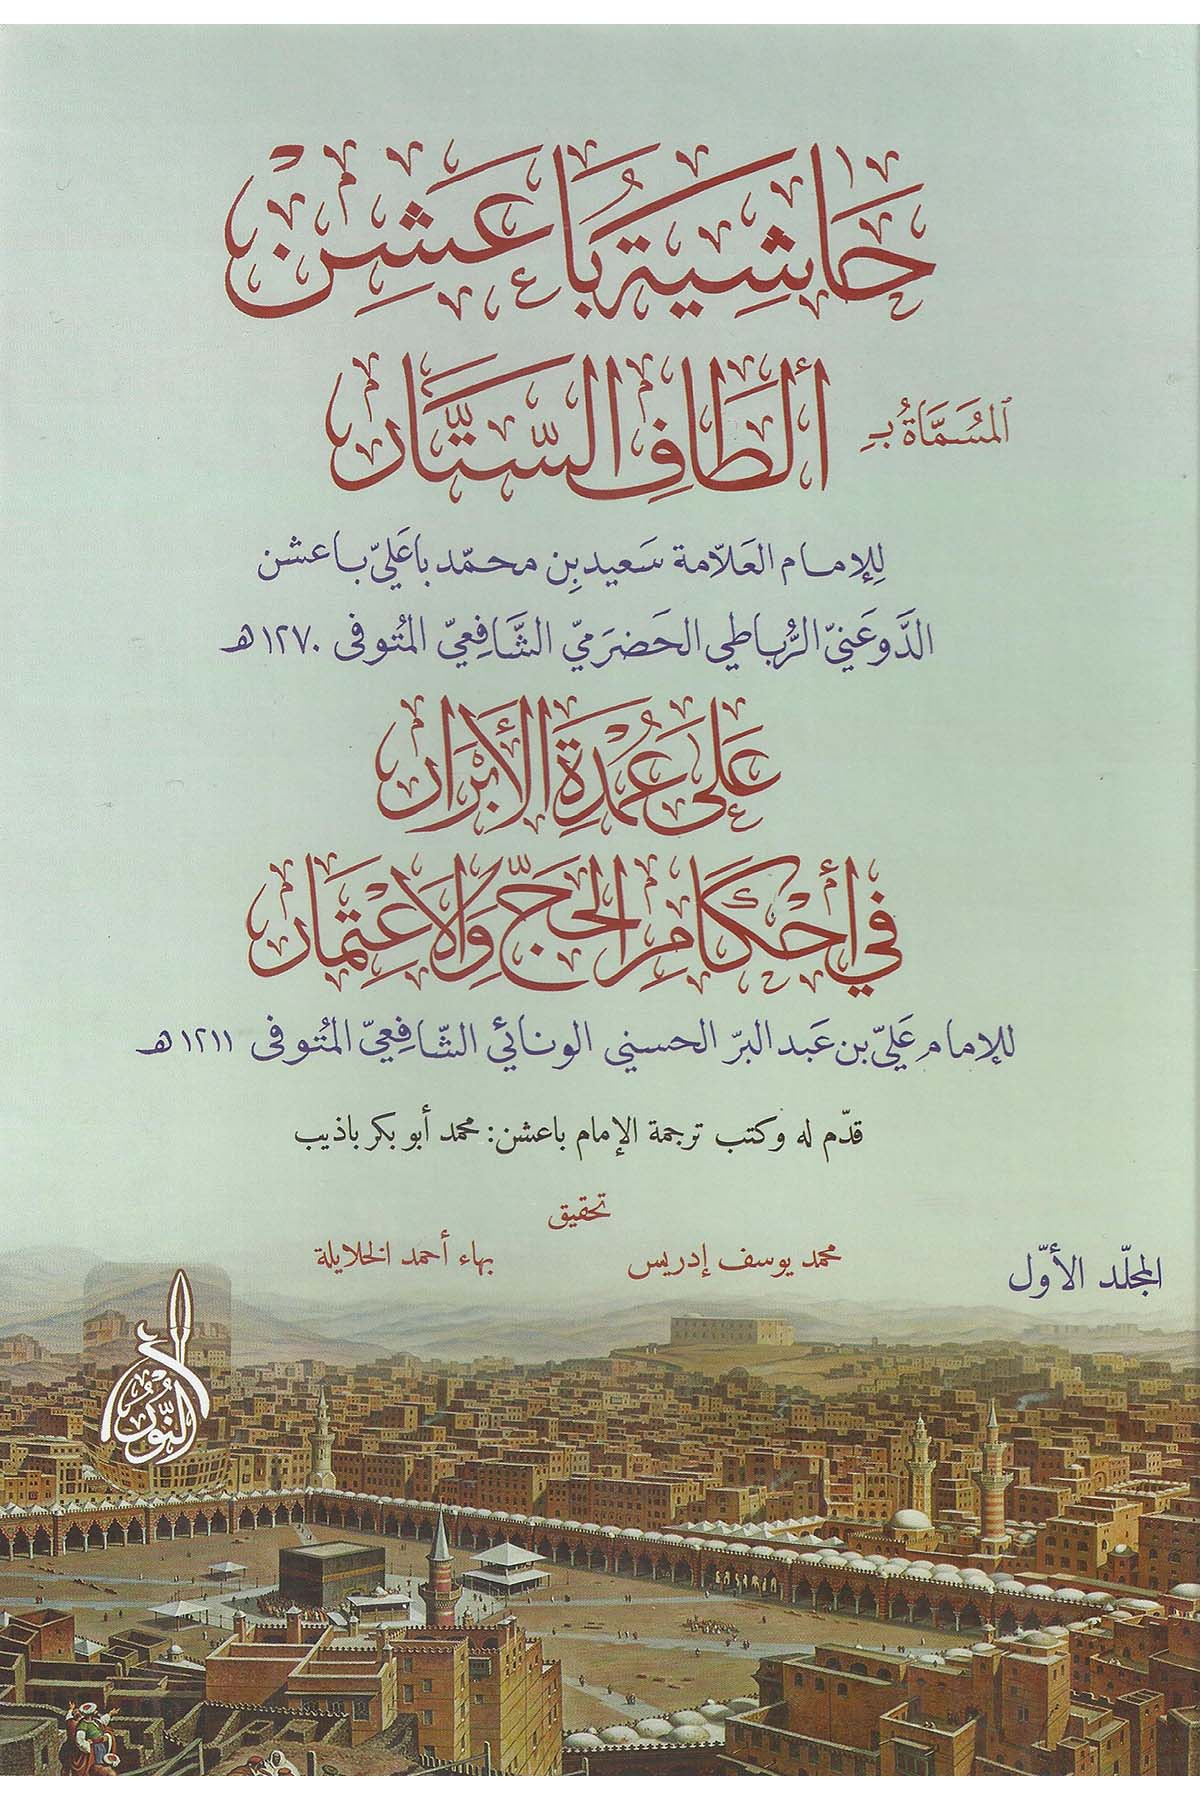 حَاشِيَةُ بَاعَشِن
المُسَمَّاةُ بـِ أَلطَافِ السَّتَّار
لِلإمام العَلّامة سَعيد بِن محمّد باعَليّ باعشن
الدَّوعَنيّ الرُّباطي الحَضرَميّ الشَّافِعيّ المُتوفى ١٢٧٠هـ
عَلى عُمْدَةِ الأَبْرَار
في أَحْكَامِ الحَجّ وَالاِعْتِمَار
للإمام عَليّ بن عَبد البرّ الحسني الونائي الشّافِعيّ المُتوفى ١٢١١هـ
قدّم له وكتب ترجمة الإمام باعشن: محمد أبو بكر باذيب
تحقيق
محمد يوسف إدريس بهاء أحمد الخلايلة
المجلّد الأوّل
النُّور